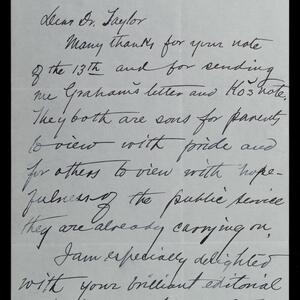 Dear Dr. Taylor
Many thanks for your note
of the 13th and for sending
me Graham's letter and Ko's note.
They both are sons for parents
to view with pride and
for others to view with hope-
fulness of the public service
they are already carrying on.
I am especially delighted
with your brilliant editorial